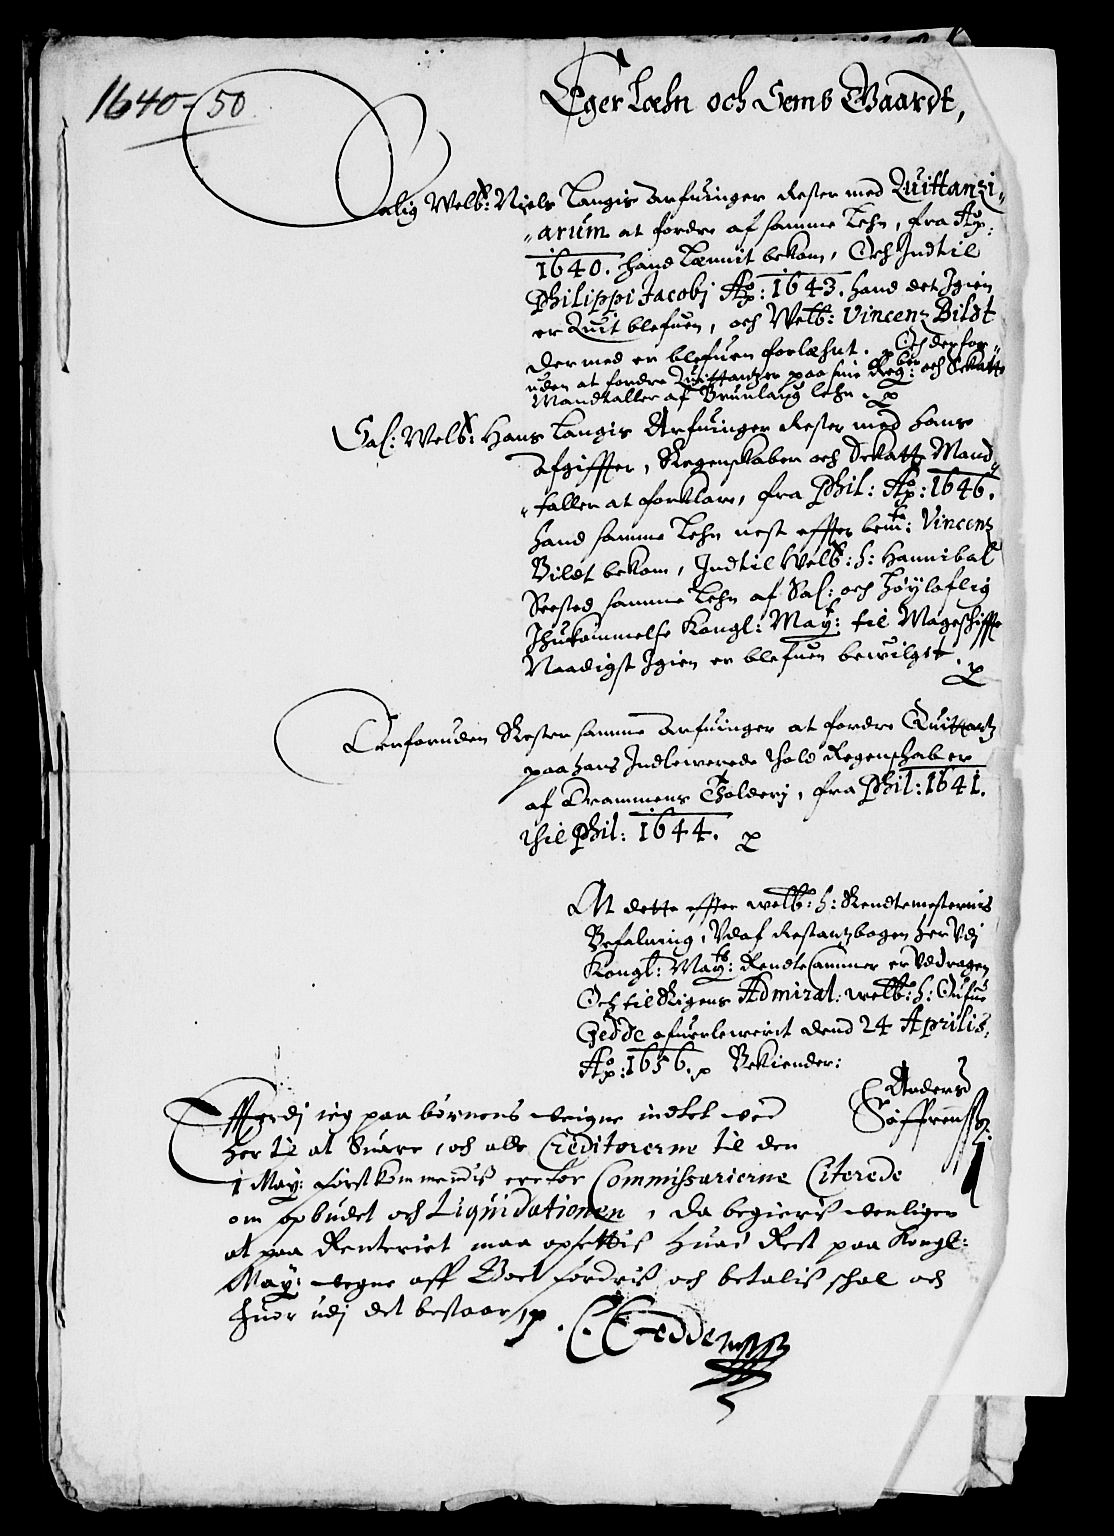 1640-50
Eger Læhn och Sems Gaardt,
Salig Welb: Niels Langis Arfuinger Rester med Quittanzi-
-arum at fordre af samme Lehn, fra Ao
1640. hand Lænnit bekom, Och Indtil
Philippi Jacobj Ao: 1643. hand det Igien
er Quit blefuen, och Welb: Vincenz Bildt
der med er blefuen forlæhnt. Och der for-
uden at fordre Quittantzer paa sine Regber: och Skatte
Mandtaller af Brunlaug lehn.
Sal: Welb: Hans Langis Arfuinger Rester med hans
afgiffter, Regenskaber och Skatte Mand-
-taller at forklare, fra Phil: Ao: 1646.
hand samme Lehn nest effter bemte: Vincenz
Bildt bekom, Indtil Welb: h: Hannibal
Seested samme Lehn af Sal: och Høylaflig
Ihukommelse Kongl: Mayt: til Mageschiffte
Naadigst Igien er blefuen bewilget.
Derforuden Rester samme Arfuinger at fordre Quittantz
paa hans Indlewerede Told Regenschaber
af Drammens Tolderj, fra Phil: 1641.
thil Phil: 1644.
At dette effter welb: h: Rendtemesternis
Befalning, Vdaf Restantzbogen her Vdj
Kongl: Mayts: RendteCammer er Vddragen
Och til Rigens Admiral: welb: h: Oufue
Gedde afuerlewerit dend 24 Aprilis.
Ao: 1656. Bekiender:
Anders
Søffrenss:
Effterdj ieg paa børnens weigne indtet ved
her til at Suare, och alle Creditorerne til den
1 May: førstkommendis ere for Commissarierne Citerede
om opbudet och Liquidationen, da begieris wenligen
at paa Renteriet maa opsettis huad Rest paa Kongl:
May: wegne aff Boet fordris och betalis schal och
huor udj det bestaar,